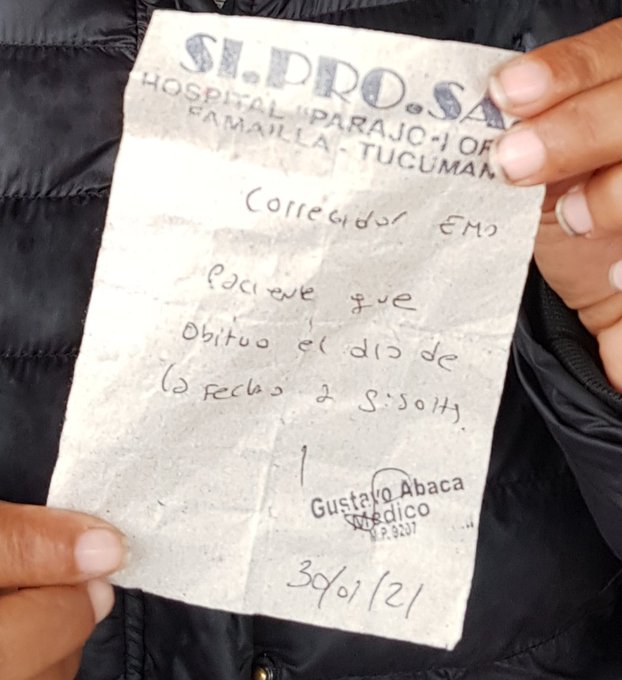 SI.PRO.SA
HOSPITAL "PARAJO-I OR
FAMAILLA - TUCUMAN
Corregidor EMA
Paciente que
Obituo el día de
la fecha a
Gustavo Abaca
Médico
M.P. 9207
30/01/21